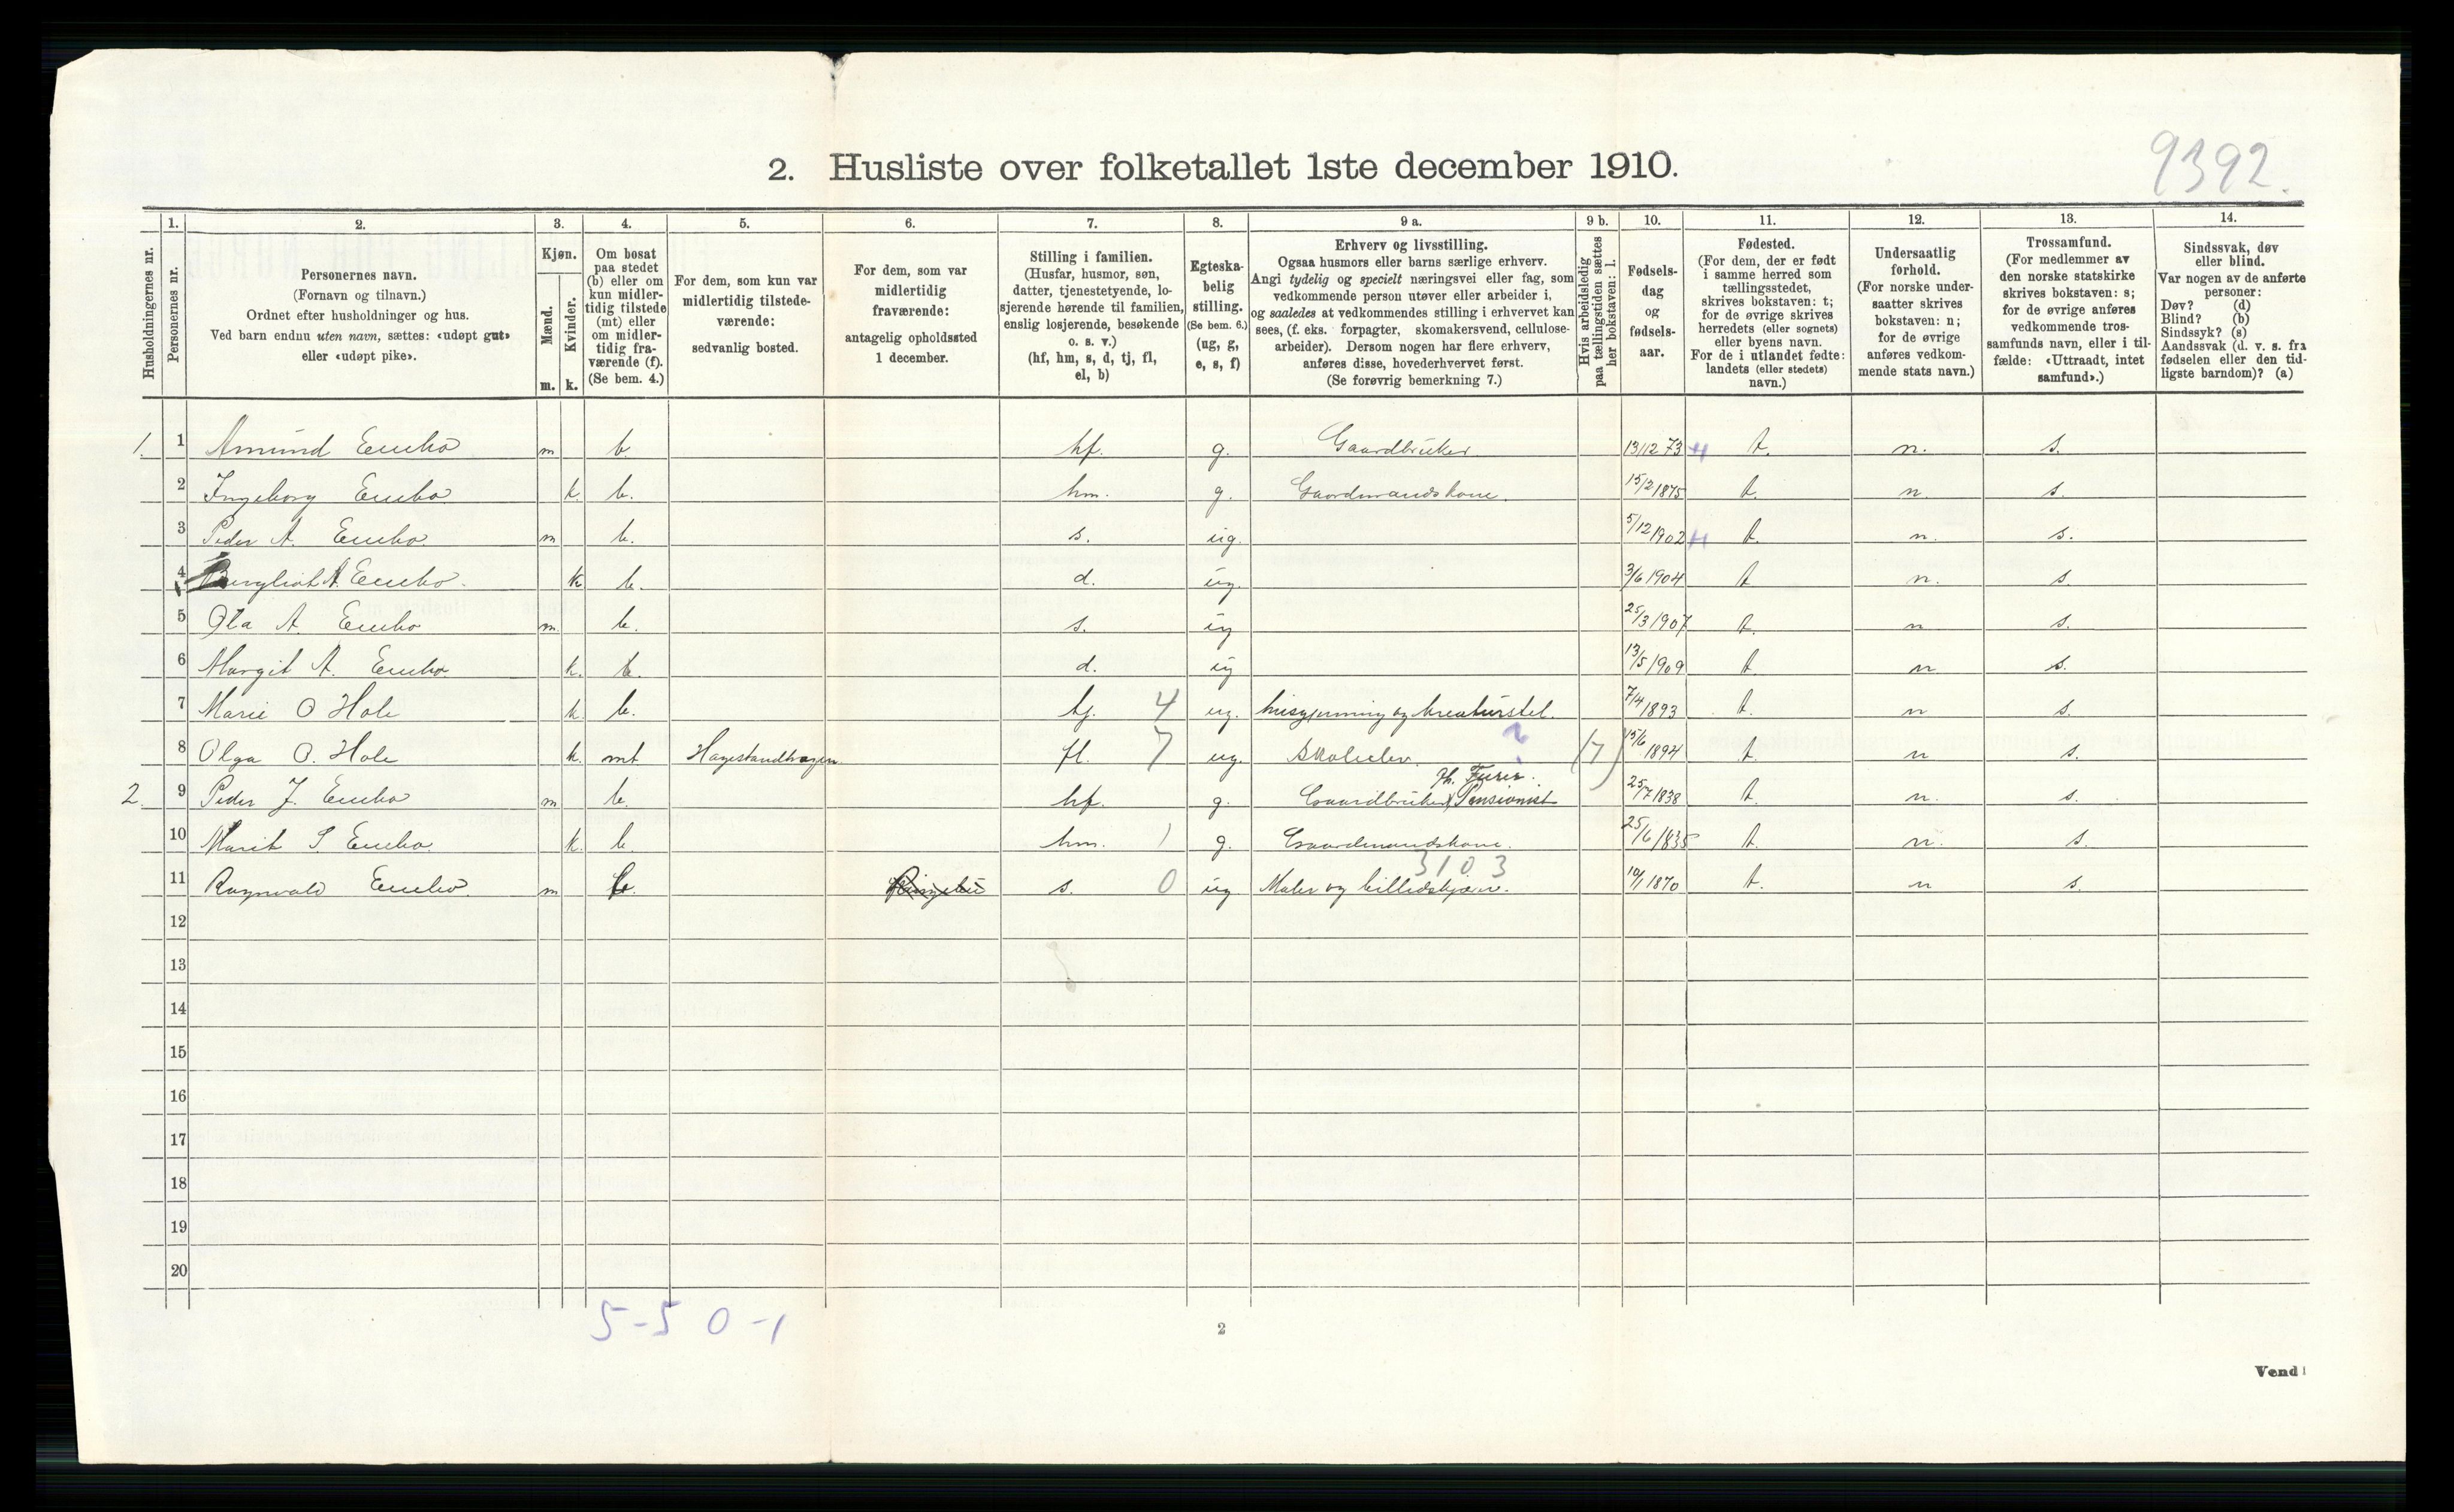 9392.
2. Husliste over folketallet 1ste december 1910.
Husholdningernes nr.
1.
Personernes nr.
2.
Personernes navn.
(Fornavn og tilnavn.)
Ordnet efter husholdninger og hus.
Ved barn endnu uten navn, sættes: «udøpt gut»
eller «udøpt pike».
3.
Kjøn.
Mænd.
Kvinder.
m. k.
4.
Om bosat
paa stedet
(b) eller om
kun midler-
tidig tilstede
(mt) eller
om midler-
tidig fra-
værende (f).
(Se bem. 4.)
5.
For dem, som kun var
midlertidig tilstede-
værende:
sedvanlig bosted.
6.
For dem, som var
midlertidig
fraværende:
antagelig opholdssted
1 december.
7.
Stilling i familien.
(Husfar, husmor, søn,
datter, tjenestetyende, lo-
sjerende hørende til familien,
enslig losjerende, besøkende
o. s. v.)
(hf, hm, s, d, tj, fl,
el, b)
8.
Egteska-
belig
stilling.
(Se bem. 6.)
(ug, g,
e, s, f)
9 a.
Erhverv og livsstilling.
Ogsaa husmors eller barns særlige erhverv.
Angi tydelig og specielt næringsvei eller fag, som
vedkommende person utøver eller arbeider i,
og saaledes at vedkommendes stilling i erhvervet kan
sees, (f. eks. forpagter, skomakersvend, cellulose-
arbeider). Dersom nogen har flere erhverv,
anføres disse, hovederhvervet først.
(Se forøvrig bemerkning 7.)
9 b.
Hvis arbeidsledig
paa tællingstiden sættes
her bokstaven: l.
10.
Fødsels-
dag
og
fødsels-
aar.
11.
Fødested.
(For dem, der er født
i samme herred som
tællingsstedet,
skrives bokstaven: t;
for de øvrige skrives
herredets (eller sognets)
eller byens navn.
For de i utlandet fødte:
landets (eller stedets)
navn.)
12.
Undersaatlig
forhold.
(For norske under-
saatter skrives
bokstaven: n;
for de øvrige
anføres vedkom-
mende stats navn.)
13.
Trossamfund.
(For medlemmer av
den norske statskirke
skrives bokstaven: s;
for de øvrige anføres
vedkommende tros-
samfunds navn, eller i til-
fælde: «Uttraadt, intet
samfund».)
14.
Sindssvak, døv
eller blind.
Var nogen av de anførte
personer:
Døv? (d)
Blind? (b)
Sindssyk? (s)
Aandssvak (d. v. s. fra
fødselen eller den tid-
ligste barndom)? (a)
1. 1 Amund Einbo m b. hf. g. Gaardbruker 13/12 73 t. n. s.
2 Ingeborg Einbo k. b. hm. g. Gaardmandskone. 15/2 1875 t. n. s.
3 Peder A. Einbo m b. s. ug. 5/12 1902 t. n. s.
4 Bergliot A. Einbo. k b. d. ug. 3/6 1904 t n. s
5 Ola A. Einbo m. b. s. ug 25/3 1907 t. n s.
6 Margit A. Einbo k. b. d. ug 13/5 1909 t. n s.
7 Marie O Hole k. b. tj. 4 ug. husgjerning og kreaturstel. 7/4 1893 t. n s.
8 Olga O. Hole k. mt fl. 7 ug. Skoleelev. (7) 15/6 1894 t. n s.
2. 9 Peder J. Einbo m b. hf. g. Gaardbruker, Pensionist 25/7 1838 t. n. s.
10 Marit P. Einbo k. b. hm. 1 g. Gaardmandskone. 25/6 1835 t. n. s.
3103
11 Ragnvald Einbo m b. s. 0 ug Maler og billedskjærer. 10/1 1870 t. n s.
12
13
14
15
16
17
18
19
20
5-5 0-1
2
Vend!